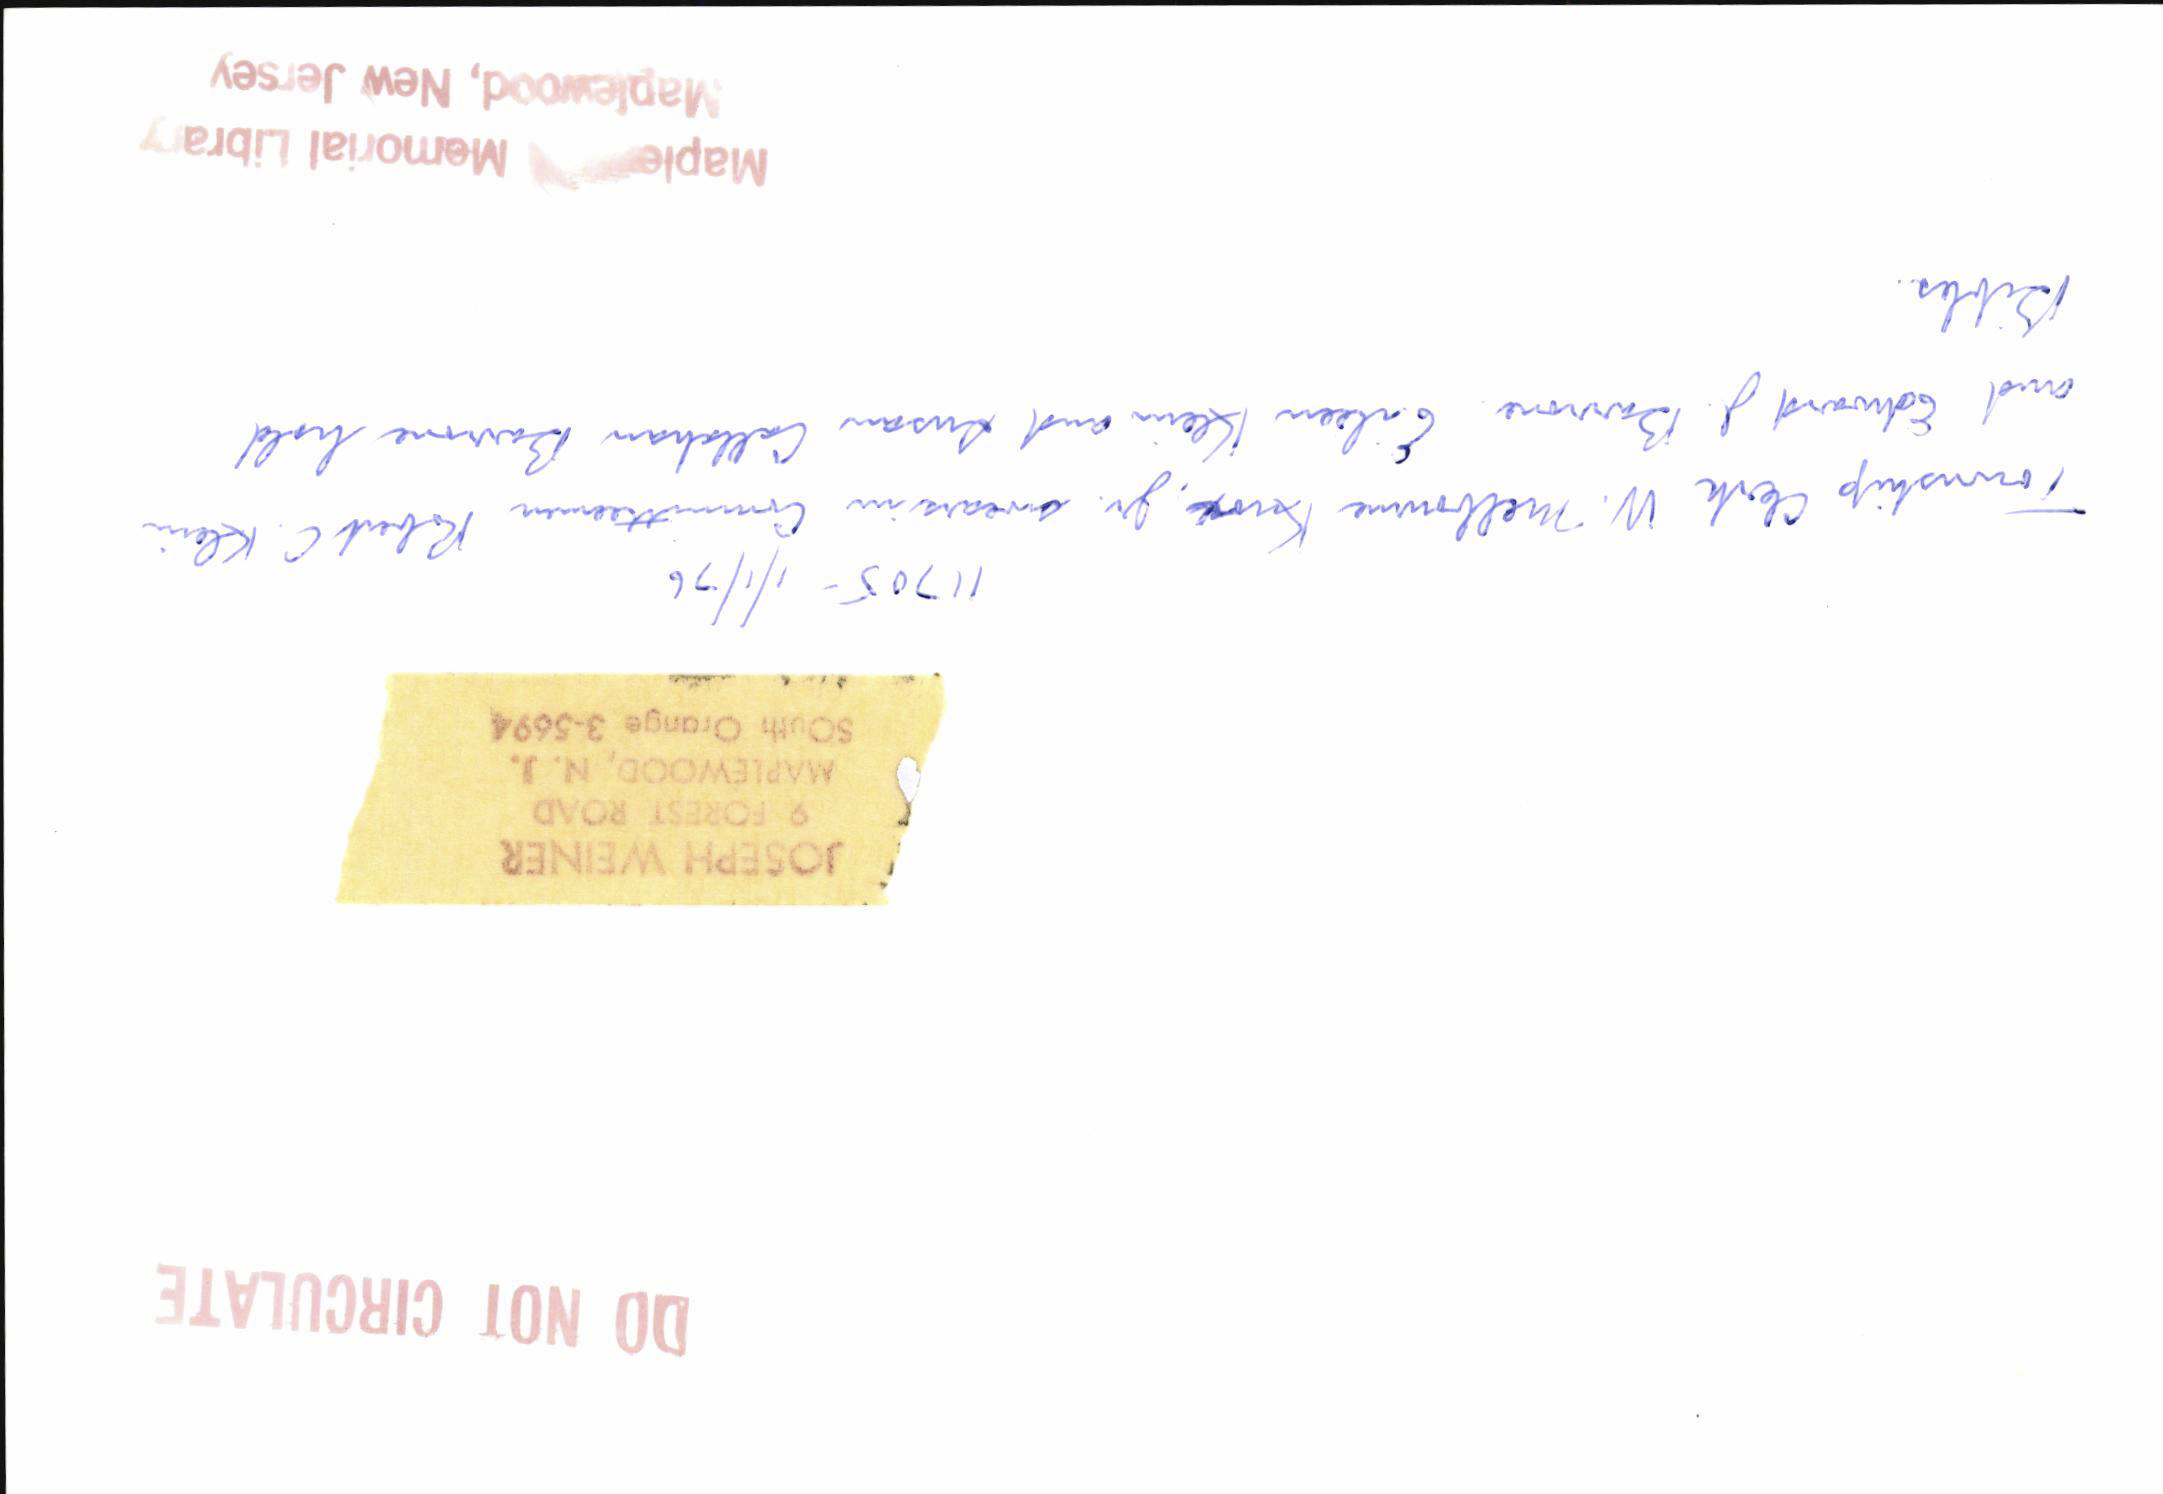 DO NOT CIRCULATE
JOSEPH WEINER
9 FOREST ROAD
MAPLEWOOD, N. J.
SOuth Orange 3-5694
11705 - 1/1/76
Township Clerk W. Melbourne Knox, Jr. swears in Committeemen Robert C. Klein
and Edward J. Barrone. Eileen Klein and Susan Callahan Barrone hold
Bibles.
Maple Memorial Library
Maplewood, New Jersey